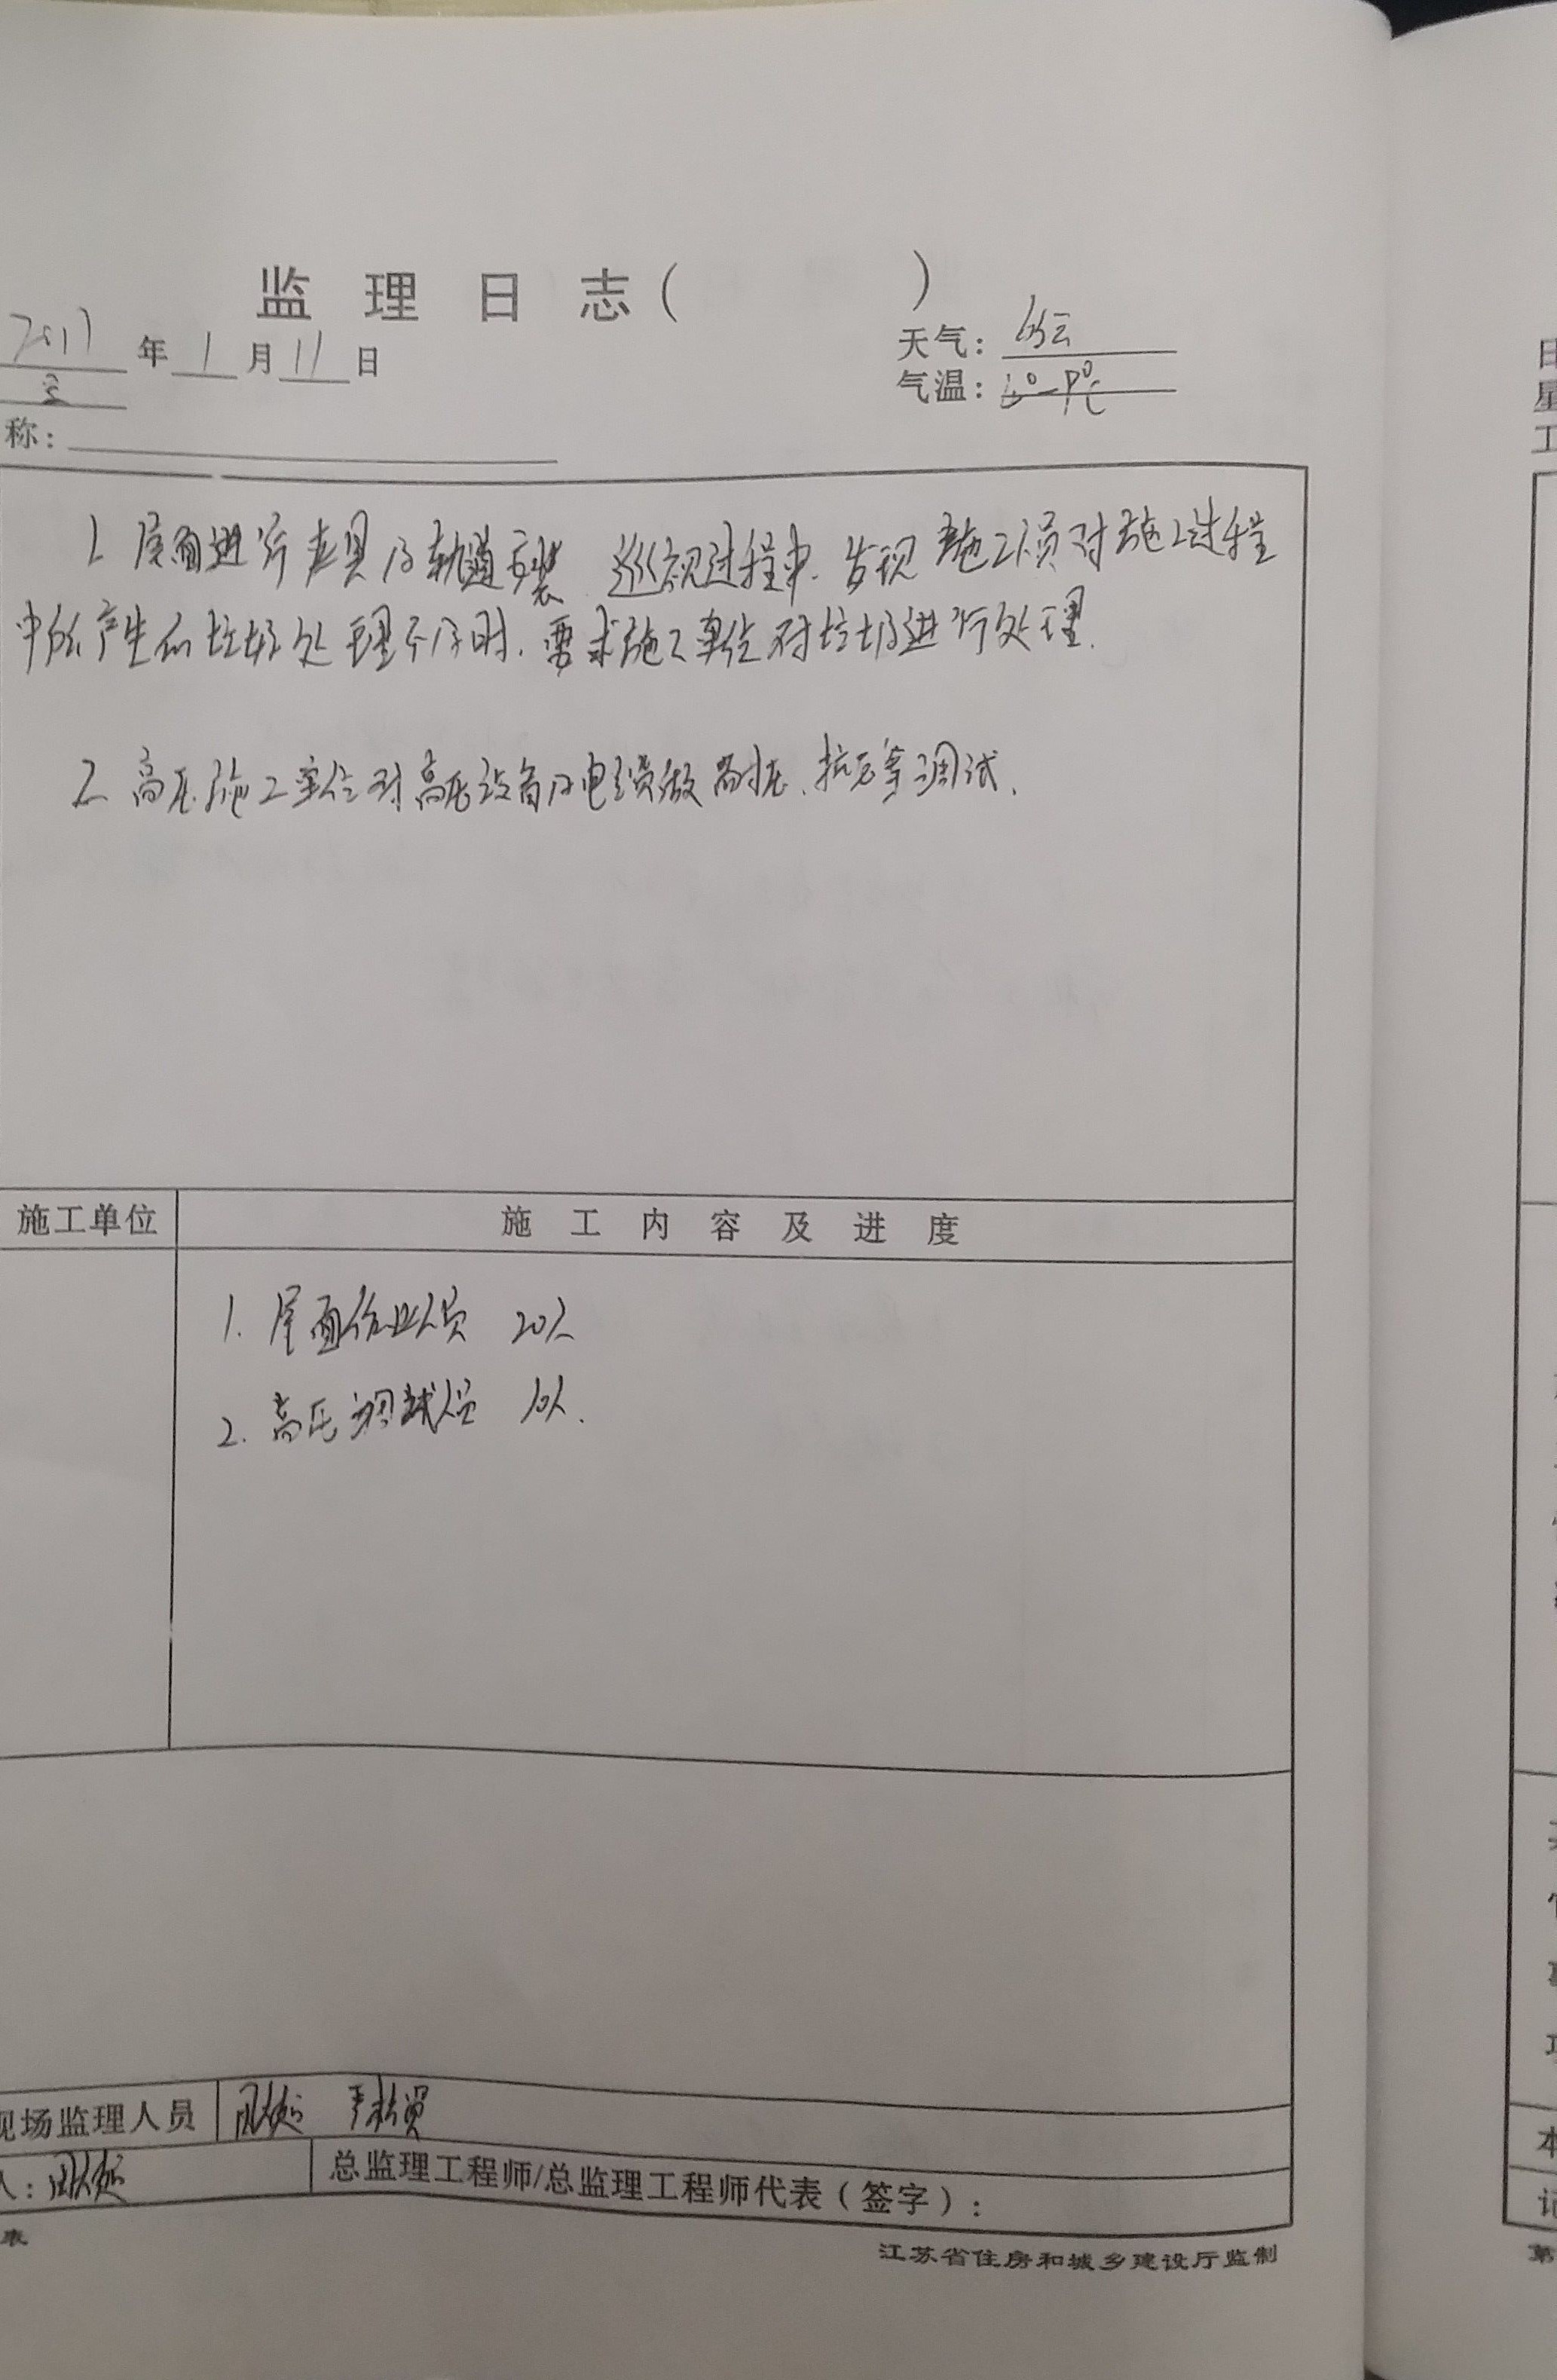 监 理 日 志（ ）
2017 年 1 月 11 日
天气：多云
三
气温：6°-9℃
称：
1. 屋面进行夹具及轨道安装 巡视过程中.发现施工人员对施工过程
中所产生的垃圾处理不及时.要求施工单位对垃圾进行处理.
2. 高压施工单位对高压设备及电缆做耐压.抗压等调试.
施工单位
施 工 内 容 及 进 度
1. 屋面作业人员 20人
2. 高压调试人员 10人.
现场监理人员
人：
总监理工程师/总监理工程师代表（签字）：
表
江苏省住房和城乡建设厅监制